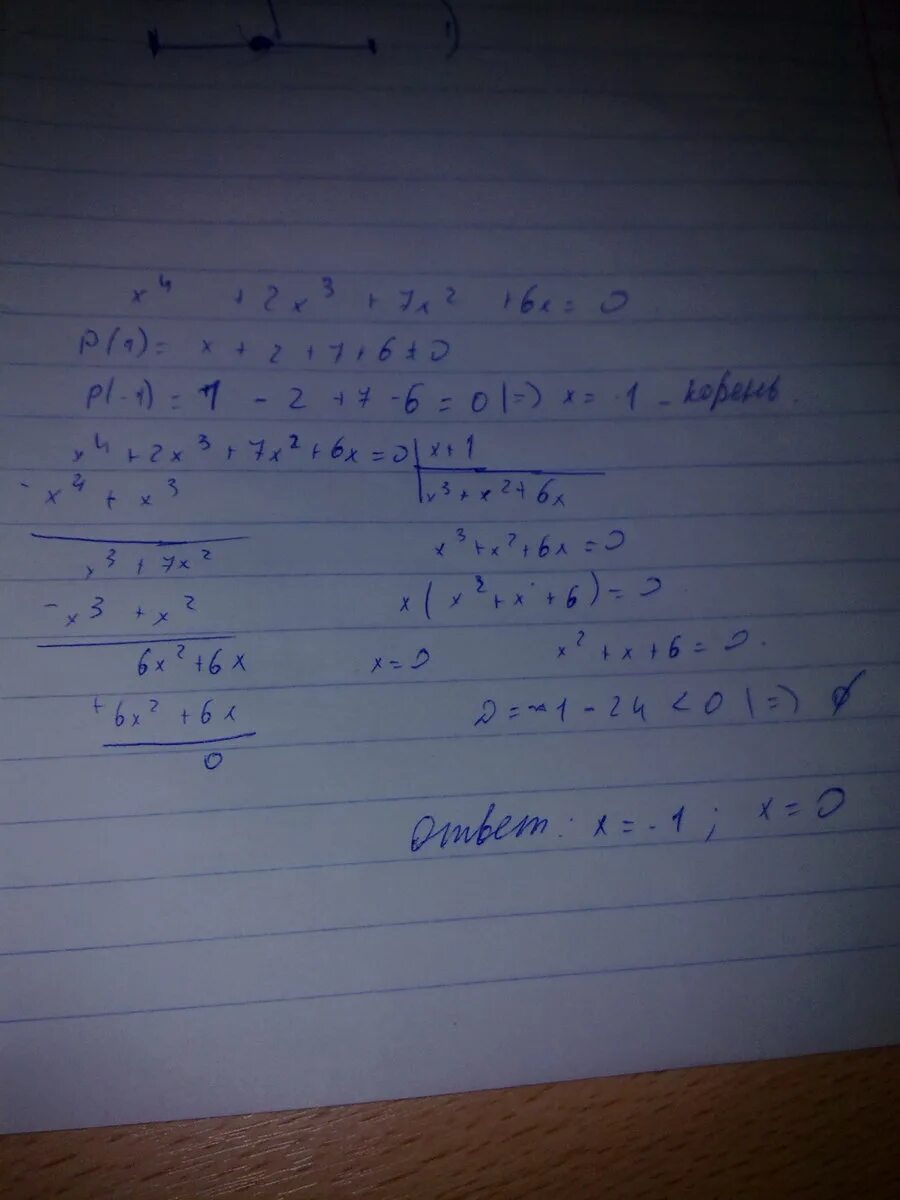 1)
x⁴ + 2x³ + 7x² + 6x = 0
P(1) = x + 2 + 7 + 6 ≠ 0
P(-1) = 1 - 2 + 7 - 6 = 0 |=> x = -1 - корень.
x⁴ + 2x³ + 7x² + 6x = 0 | x + 1
- x⁴ + x³
x³ + x² + 6x
x³ + 7x²
x³ + x² + 6x = 0
- x³ + x²
x ( x² + x + 6 ) = 0
6x² + 6x
x = 0
x² + x + 6 = 0.
+ 6x² + 6x
D = 1 - 24 < 0 |=> ∅
0
Ответ: x = -1 ; x = 0